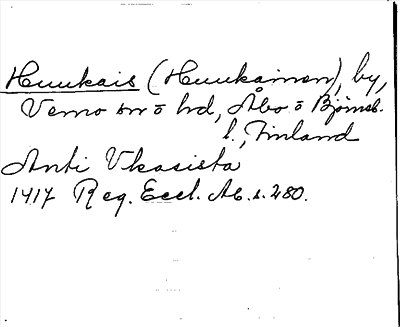 Huukais (Huukainen), by,
Vemo sn o hd, Åbo o Björneb.
l., Finland
Anti Vkasista
1417 Reg. Eccl. Ab. s. 280.